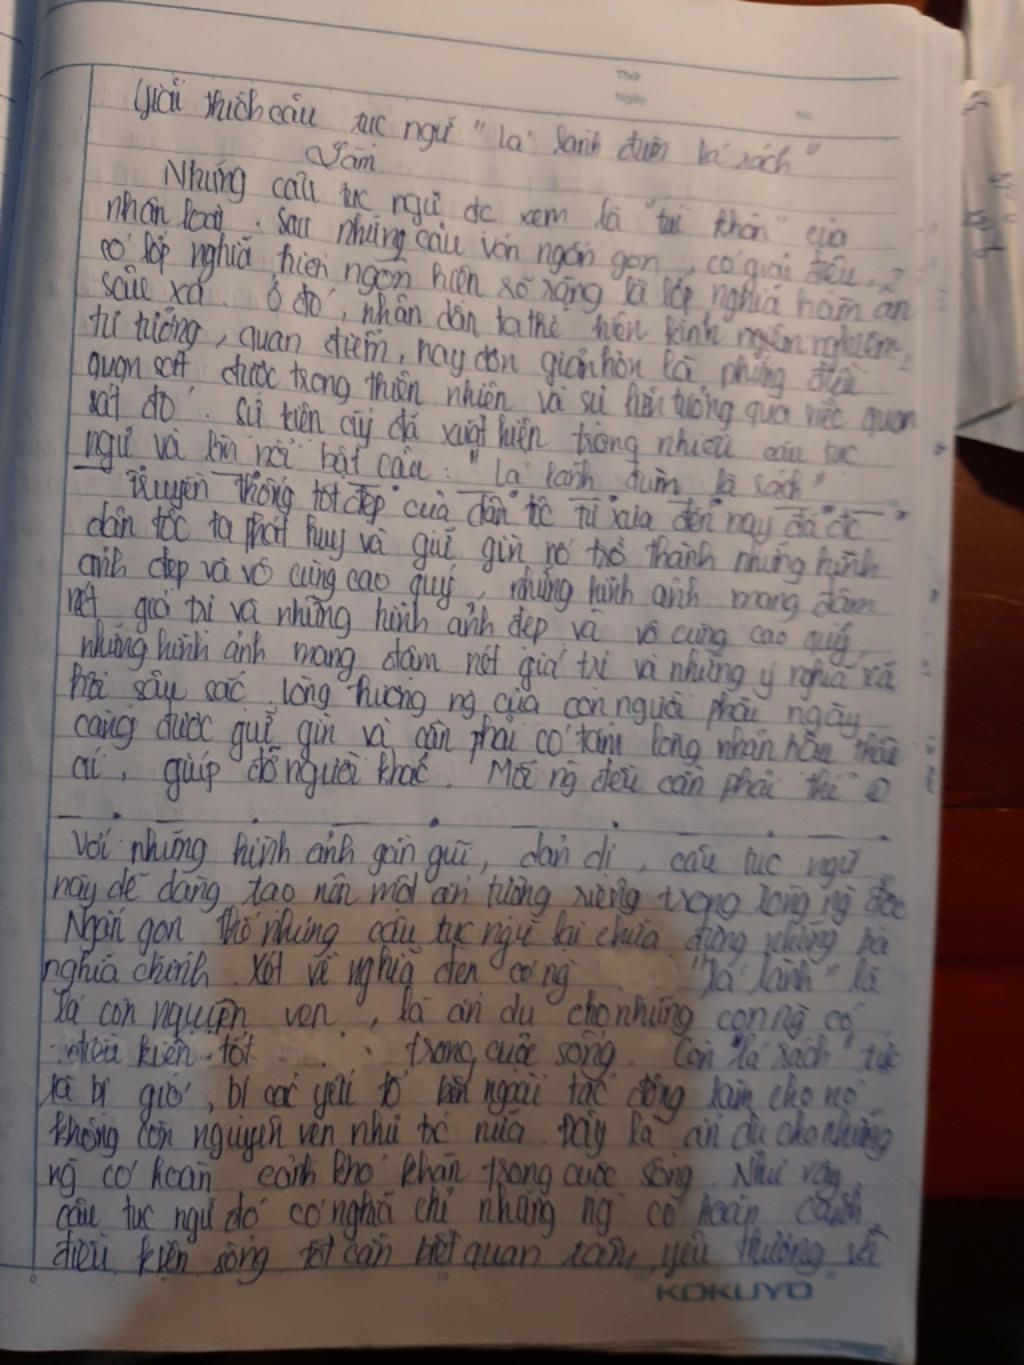 Giải thích câu tục ngữ "lá lành đùm lá rách"
Làm
Những câu tục ngữ đc xem là "túi khôn" của
nhân loại. Sau những câu văn ngắn gọn, có giai điệu, 2
có lớp nghĩa hiển ngôn hiện rõ ràng là lớp nghĩa hàm ẩn
sâu xa. Ở đó, nhân dân ta thể hiện kinh nghiệm
tư tưởng, quan điểm, hay đơn giản hơn là những điều
quan sát được trong thiên nhiên và sự liên tưởng qua việc quan
sát đó. Sự tiên cũng đã xuất hiện trong nhiều câu tục
ngữ và nổi bật câu: "lá lành đùm lá rách"
Truyền thống tốt đẹp của dân tộc từ xưa đến nay đã đc
dân tộc ta phát huy và giữ gìn nó trở thành những hình
ảnh đẹp và vô cùng cao quý, những hình ảnh mang đậm
nét giá trị và những hình ảnh đẹp và vô cùng cao quý,
những hình ảnh mang đậm nét giá trị và những ý nghĩa xã
hội sâu sắc, lòng thương ng của con người phải ngày
càng được giữ gìn và cần phải có tấm lòng nhân hậu thân
ái, giúp đỡ người khác. Mỗi ng đều cần phải thể
Với những hình ảnh gần gũi, dản dị, câu tục ngữ
này dễ dàng tạo nên một ấn tượng riêng trong lòng ng đọc
Ngắn gọn thế nhưng câu tục ngữ lại chứa đựng
nghĩa chính. Xét về nghĩa đen có ng "lá lành" là
lá còn nguyên vẹn, là ẩn dụ cho những con ng có
điều kiện tốt trong cuộc sống. Còn "lá rách" tức
là bị gió, bị các yếu tố bên ngoài tác động làm cho nó
không còn nguyên vẹn như tc nữa. Đây là ẩn dụ cho những
ng có hoàn cảnh khó khăn trong cuộc sống. Như vậy,
câu tục ngữ đó có nghĩa chỉ những ng có hoàn cảnh,
điều kiện sống tốt cần biết quan tâm, yêu thương và
KOKUYO